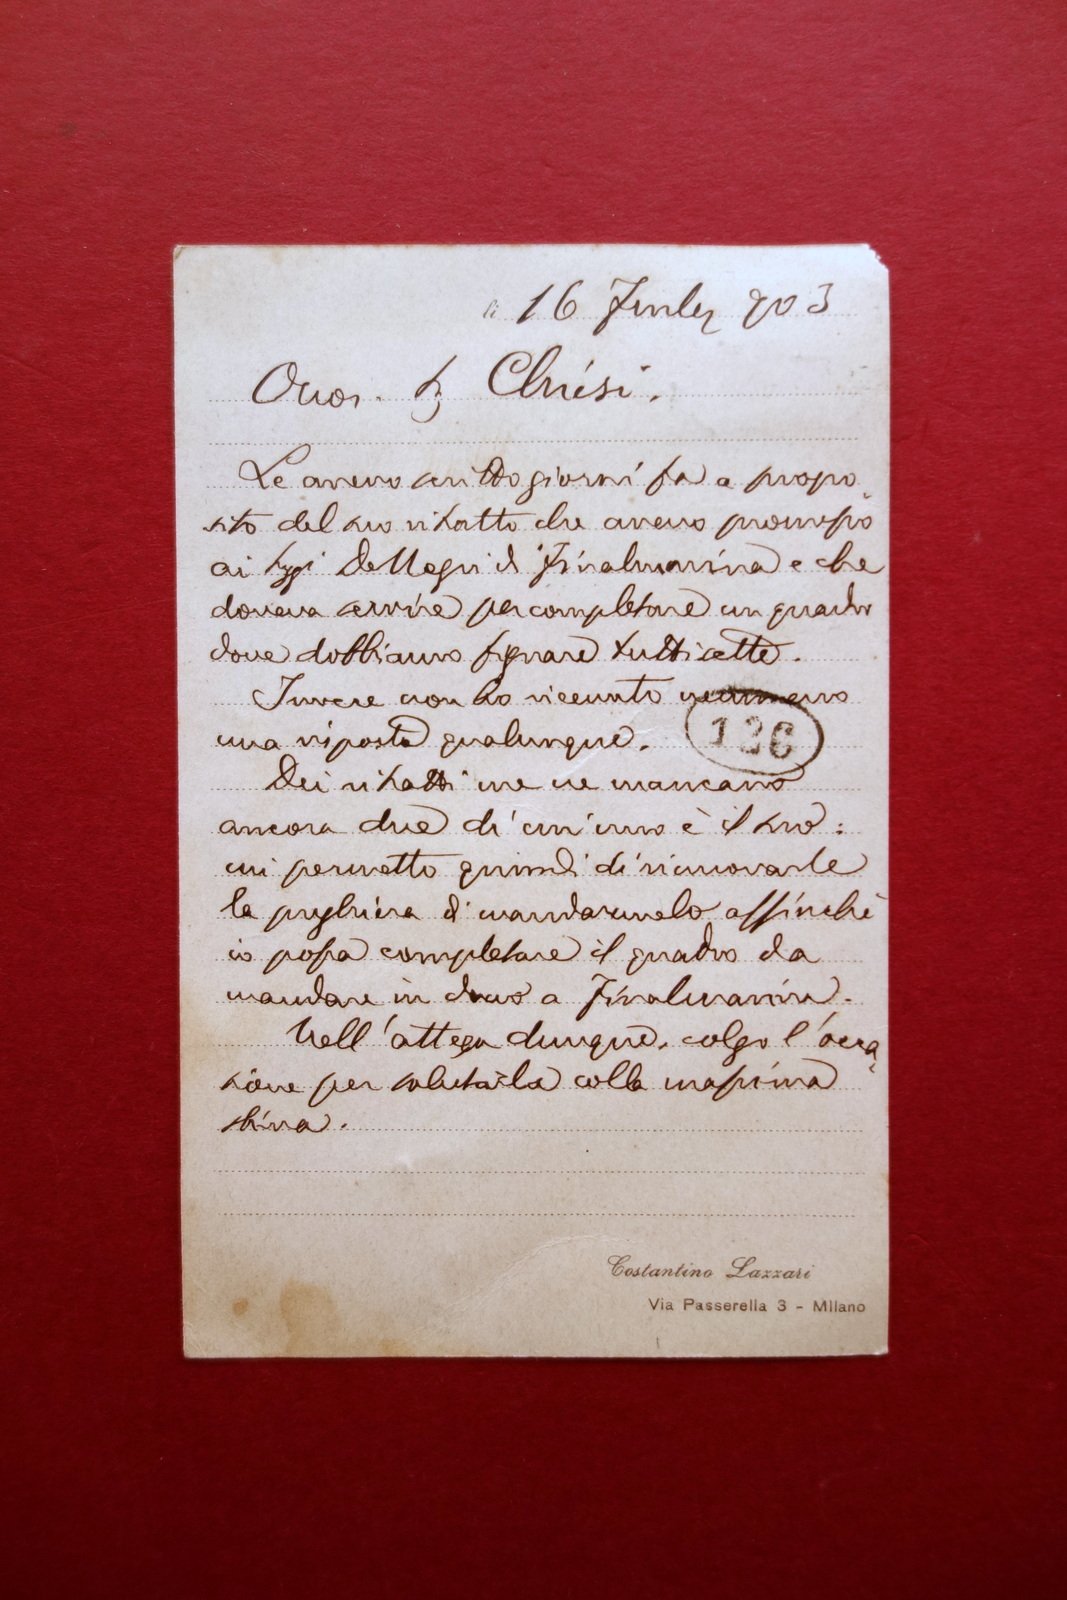 li 16 903
Onor. Sg Chiesi.
Le avevo scritto giorni fa a propo-
sito del suo ritratto che avevo promesso
ai Sigi Dellegri di Finalmarina e che
doveva servire per completare un quadro
dove dobbiamo figurare tutti sette.
Invece non ho ricevuto nemmeno
una risposta qualunque.
126
Dei ritratti me ne mancano
ancora due di cui uno è il suo:
mi permetto quindi di rinnovarle
la preghiera di mandarmelo affinchè
io possa completare il quadro da
mandare in dono a Finalmarina.
Nell'attesa dunque, colgo l'occa-
sione per salutarla colla massima
stima.
Costantino Lazzari
Via Passerella 3 - Milano